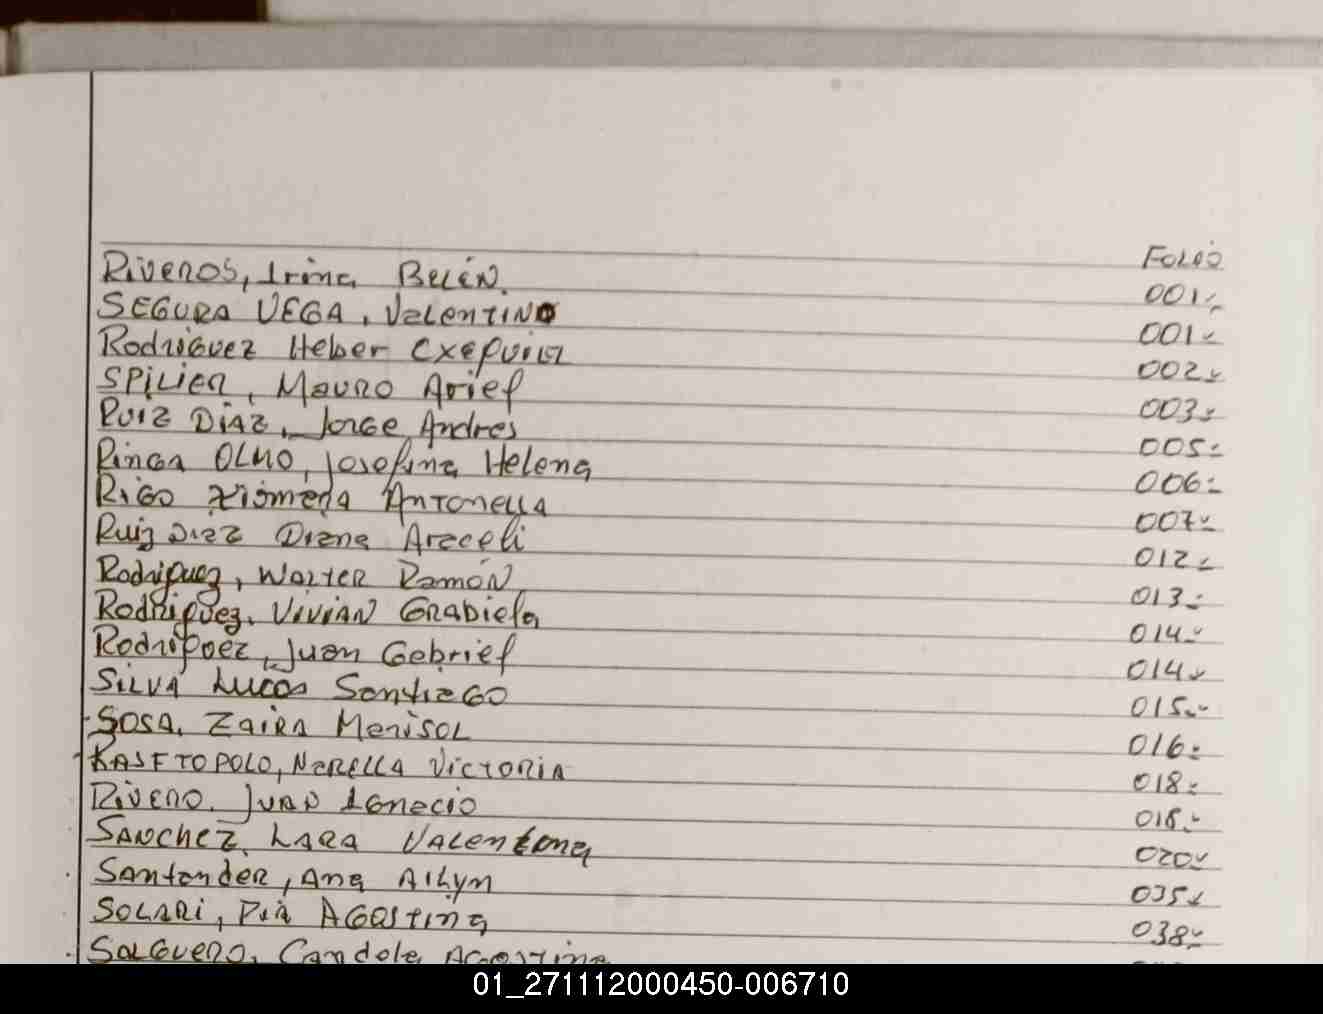 FOLIO
Riveros, Irina Belén. 001
SEGURA VEGA, Valentino 001
Rodriguez Heber Exequiel 002
SPILIER, Mauro Ariel 003
Ruiz DIAZ, Jorge Andres 005
Rinca OLMO, Josefina Helena 006
RIGO Xiomera Antonella 007
Ruiz Diaz Diana Araceli 012
Rodriguez, Walter Ramón 013
Rodriguez, VIVIAN Grabiela 014
Rodriguez, Juan Gabriel 014
SILVA Lucas Santiago 015
SOSA, Zaira Marisol 016
RASFTOPOLO, NARELLA VICTORIA 018
Rivero. JUAN Ignacio 018
SANCHEZ, LARA VALENTINA 020
Santander, Ana Ailyn 035
SOLARI, PIA AGOSTINA 038
SALGUERO, Candela Agostina
01_271112000450-006710